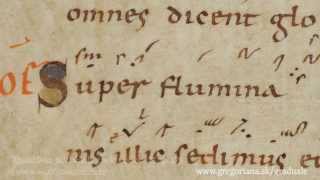 omnes dicent glo
OF Super flumina
nis illic sedimus et
www.gregoriana.sk/graduale